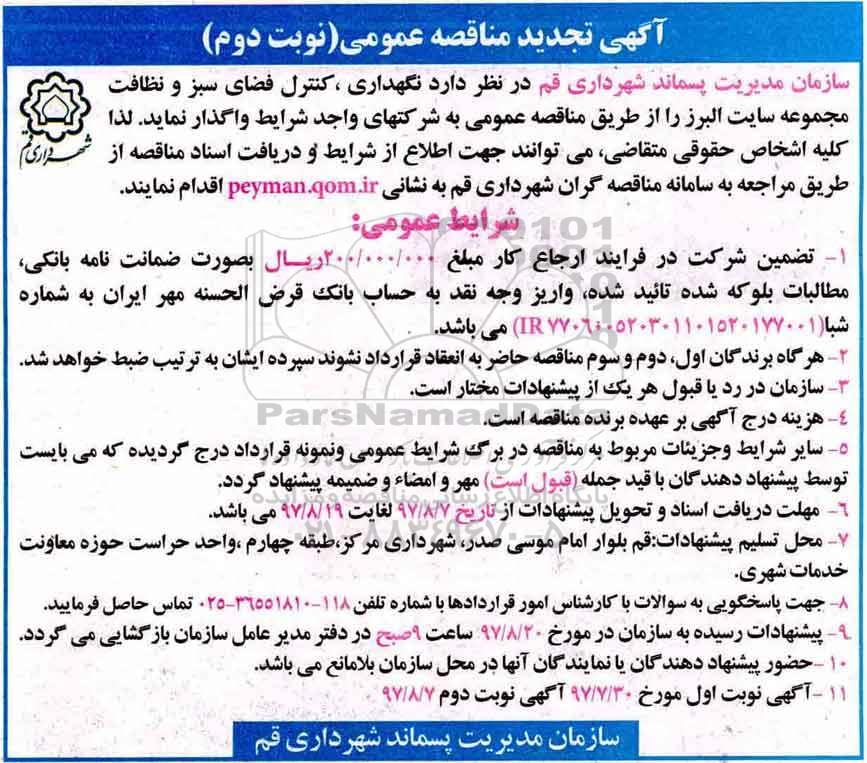 آگهی تجدید مناقصه عمومی(نوبت دوم)
سازمان مدیریت پسماند شهرداری قم در نظر دارد نگهداری ،کنترل فضای سبز و نظافت
مجموعه سایت البرز را از طریق مناقصه عمومی به شرکتهای واجد شرایط واگذار نماید. لذا
کلیه اشخاص حقوقی متقاضی، می توانند جهت اطلاع از شرایط و دریافت اسناد مناقصه از
طریق مراجعه به سامانه مناقصه گران شهرداری قم به نشانی peyman.qom.ir اقدام نمایند.
شهرداری قم
شرایط عمومی:
۱- تضمین شرکت در فرایند ارجاع کار مبلغ ۲۰۰/۰۰۰/۰۰۰ریال بصورت ضمانت نامه بانکی،
مطالبات بلوکه شده تائید شده، واریز وجه نقد به حساب بانک قرض الحسنه مهر ایران به شماره
شبا(IR۷۷۰۶۰۰۵۲۰۳۰۱۱۰۱۵۲۰۱۷۷۰۰۱) می باشد.
۲- هرگاه برندگان اول، دوم و سوم مناقصه حاضر به انعقاد قرارداد نشوند سپرده ایشان به ترتیب ضبط خواهد شد.
۳- سازمان در رد یا قبول هر یک از پیشنهادات مختار است.
ParsNamadData
۴- هزینه درج آگهی بر عهده برنده مناقصه است.
۵- سایر شرایط وجزیئات مربوط به مناقصه در برگ شرایط عمومی ونمونه قرارداد درج گردیده که می بایست
توسط پیشنهاد دهندگان با قید جمله (قبول است) مهر و امضاء و ضمیمه پیشنهاد گردد.
پایگاه اطلاع رسانی مناقصه و مزایده
۶- مهلت دریافت اسناد و تحویل پیشنهادات از تاریخ ۹۷/۸/۷ لغایت ۹۷/۸/۱۹ می باشد.
۰۲۱-۸۸۳۴۹۶۷۰-۵
۷- محل تسلیم پیشنهادات:قم بلوار امام موسی صدر، شهرداری مرکز،طبقه چهارم ،واحد حراست حوزه معاونت
خدمات شهری.
۸- جهت پاسخگویی به سوالات با کارشناس امور قراردادها با شماره تلفن ۱۱۸-۳۶۵۵۱۸۱۰-۰۲۵ تماس حاصل فرمایید.
۹- پیشنهادات رسیده به سازمان در مورخ ۹۷/۸/۲۰ ساعت ۹صبح در دفتر مدیر عامل سازمان بازگشایی می گردد.
۱۰ -حضور پیشنهاد دهندگان یا نمایندگان آنها در محل سازمان بلامانع می باشد.
۱۱ -آگهی نوبت اول مورخ ۹۷/۷/۳۰ آگهی نوبت دوم ۹۷/۸/۷
سازمان مدیریت پسماند شهرداری قم